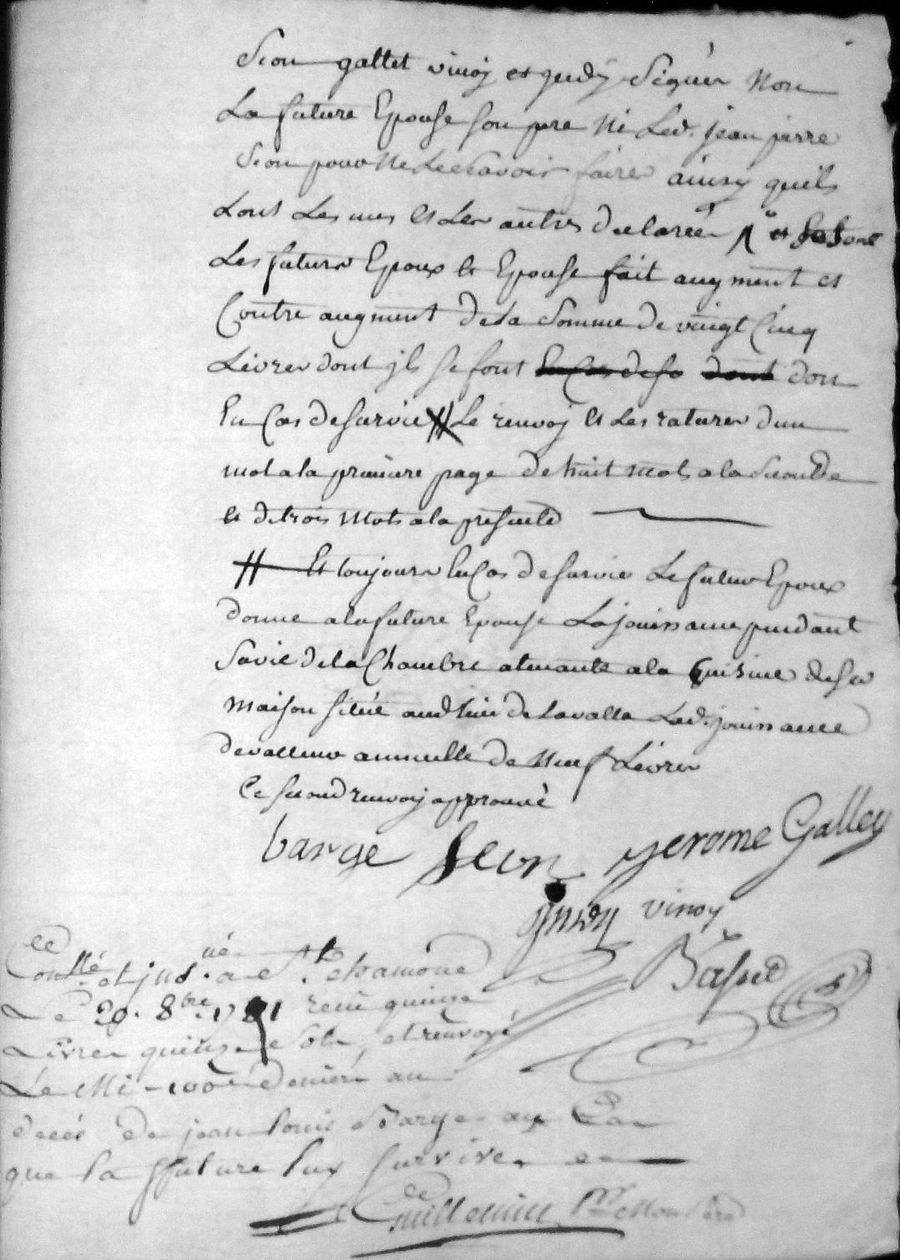 Seon gallet vinoy et gudy Signés Non
La future Epouse son pere Ni Led. jean pierre
Seon pour Ne Lesavoir faire ainsy quils
Lont Les uns et Les autres declarée et se sont
Les futurs Epoux et Epouse fait augment et
Contre augment dela Somme de vingt Cinq
Livres dont jls se font en Cas de se dont don
En Cas de survie # Le renvoy et Les ratures dun
mot ala premiere page de huit mots a la Seconde
et de trois mots ala presente
# Et toujours En Cas de survie Le futur Epoux
donne ala future Epouse La jouissance pendant
Sa vie de la Chambre atenante a la Cuisine de sa
maison située aud lieu de Lavalla Lad. jouissance
de valleur annuelle de Neuf Livres
Ce second renvoy approuvé
barge Seon jerome Galley
gudy vinoy

Conllé et jnsné a St. chamond
Le 29. 8bre 1781 recu quinze
Livres quinze Sols, et renvoyé
Le denier au
deces de jean louis Barge au Cas
que la ffuture luy survive